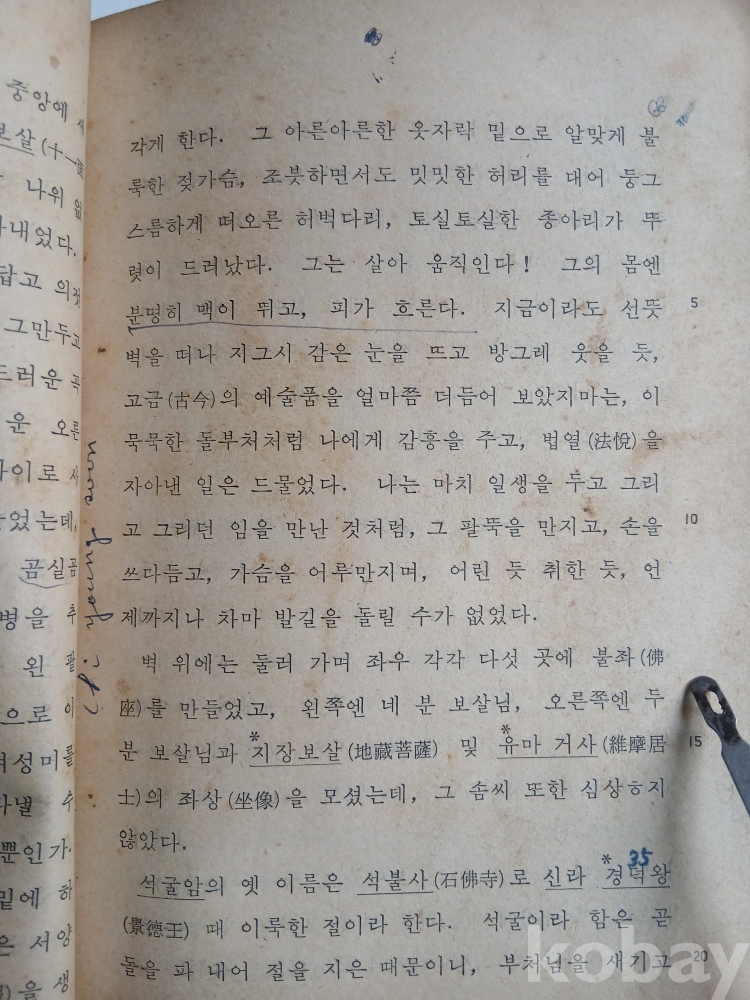 중앙에
보살(十一面
나위 없
내었다.
답고 의젓
그만두고
드러운 곡
운 오른
이로
었는데,
곰실곰
병을 추
왼 팔
으로 이
여성미를
낼 수
뿐인가.
밑에 하
은 서양
을 생
각게 한다. 그 아른아른한 옷자락 밑으로 알맞게 불
룩한 젖가슴, 조붓하면서도 밋밋한 허리를 대어 둥그
스름하게 떠오른 허벅다리, 토실토실한 종아리가 뚜
렷이 드러났다. 그는 살아 움직인다! 그의 몸엔
분명히 맥이 뛰고, 피가 흐른다. 지금이라도 선뜻 5
벽을 떠나 지그시 감은 눈을 뜨고 방그레 웃을 듯,
고금(古今)의 예술품을 얼마쯤 더듬어 보았지마는, 이
묵묵한 돌부처처럼 나에게 감흥을 주고, 법열(法悅)을
자아낸 일은 드물었다. 나는 마치 일생을 두고 그리
고 그리던 임을 만난 것처럼, 그 팔뚝을 만지고, 손을 10
쓰다듬고, 가슴을 어루만지며, 어린 듯 취한 듯, 언
제까지나 차마 발길을 돌릴 수가 없었다.
벽 위에는 둘러 가며 좌우 각각 다섯 곳에 불좌(佛
座)를 만들었고, 왼쪽엔 네 분 보살님, 오른쪽엔 두
분 보살님과 *지장보살(地藏菩薩) 및 *유마 거사(維摩居 15
士)의 좌상(坐像)을 모셨는데, 그 솜씨 또한 심상ㅎ지
않았다.
석굴암의 옛 이름은 석불사(石佛寺)로 신라 *경덕왕 35
(景德王) 때 이룩한 절이라 한다. 석굴이라 함은 곧
돌을 파 내어 절을 지은 때문이니, 부처님을 새기고 20
kobay